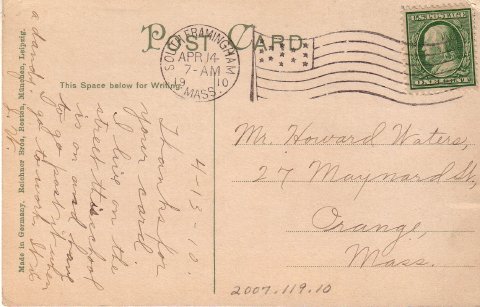 POST CARD
SOUTH FRAMINGHAM
APR 14
7-AM
19 10
MASS.
U.S. POSTAGE
ONE CENT
This Space below for Writing.
4-13-10.
Thanks for
your card
I live on the
street this school
is on and have
to go past it when
I go to work. It is
a dandy.
Mr. Howard Waters,
27 Maynard St,
Orange,
Mass.
2007.119.10
Made in Germany. Reichner Bros, Boston, München, Leipzig.